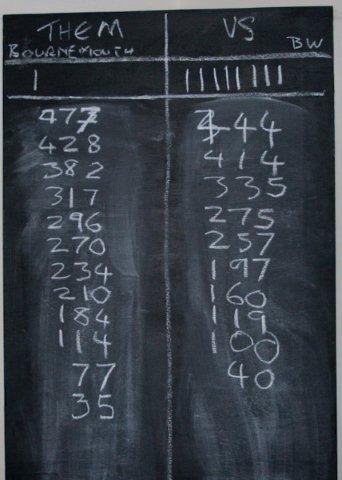 THEM
BOURNEMOUTH
|
477
428
382
317
296
270
234
210
184
114
77
35
VS
BW
|||||||||
444
414
335
275
257
197
160
119
100
40